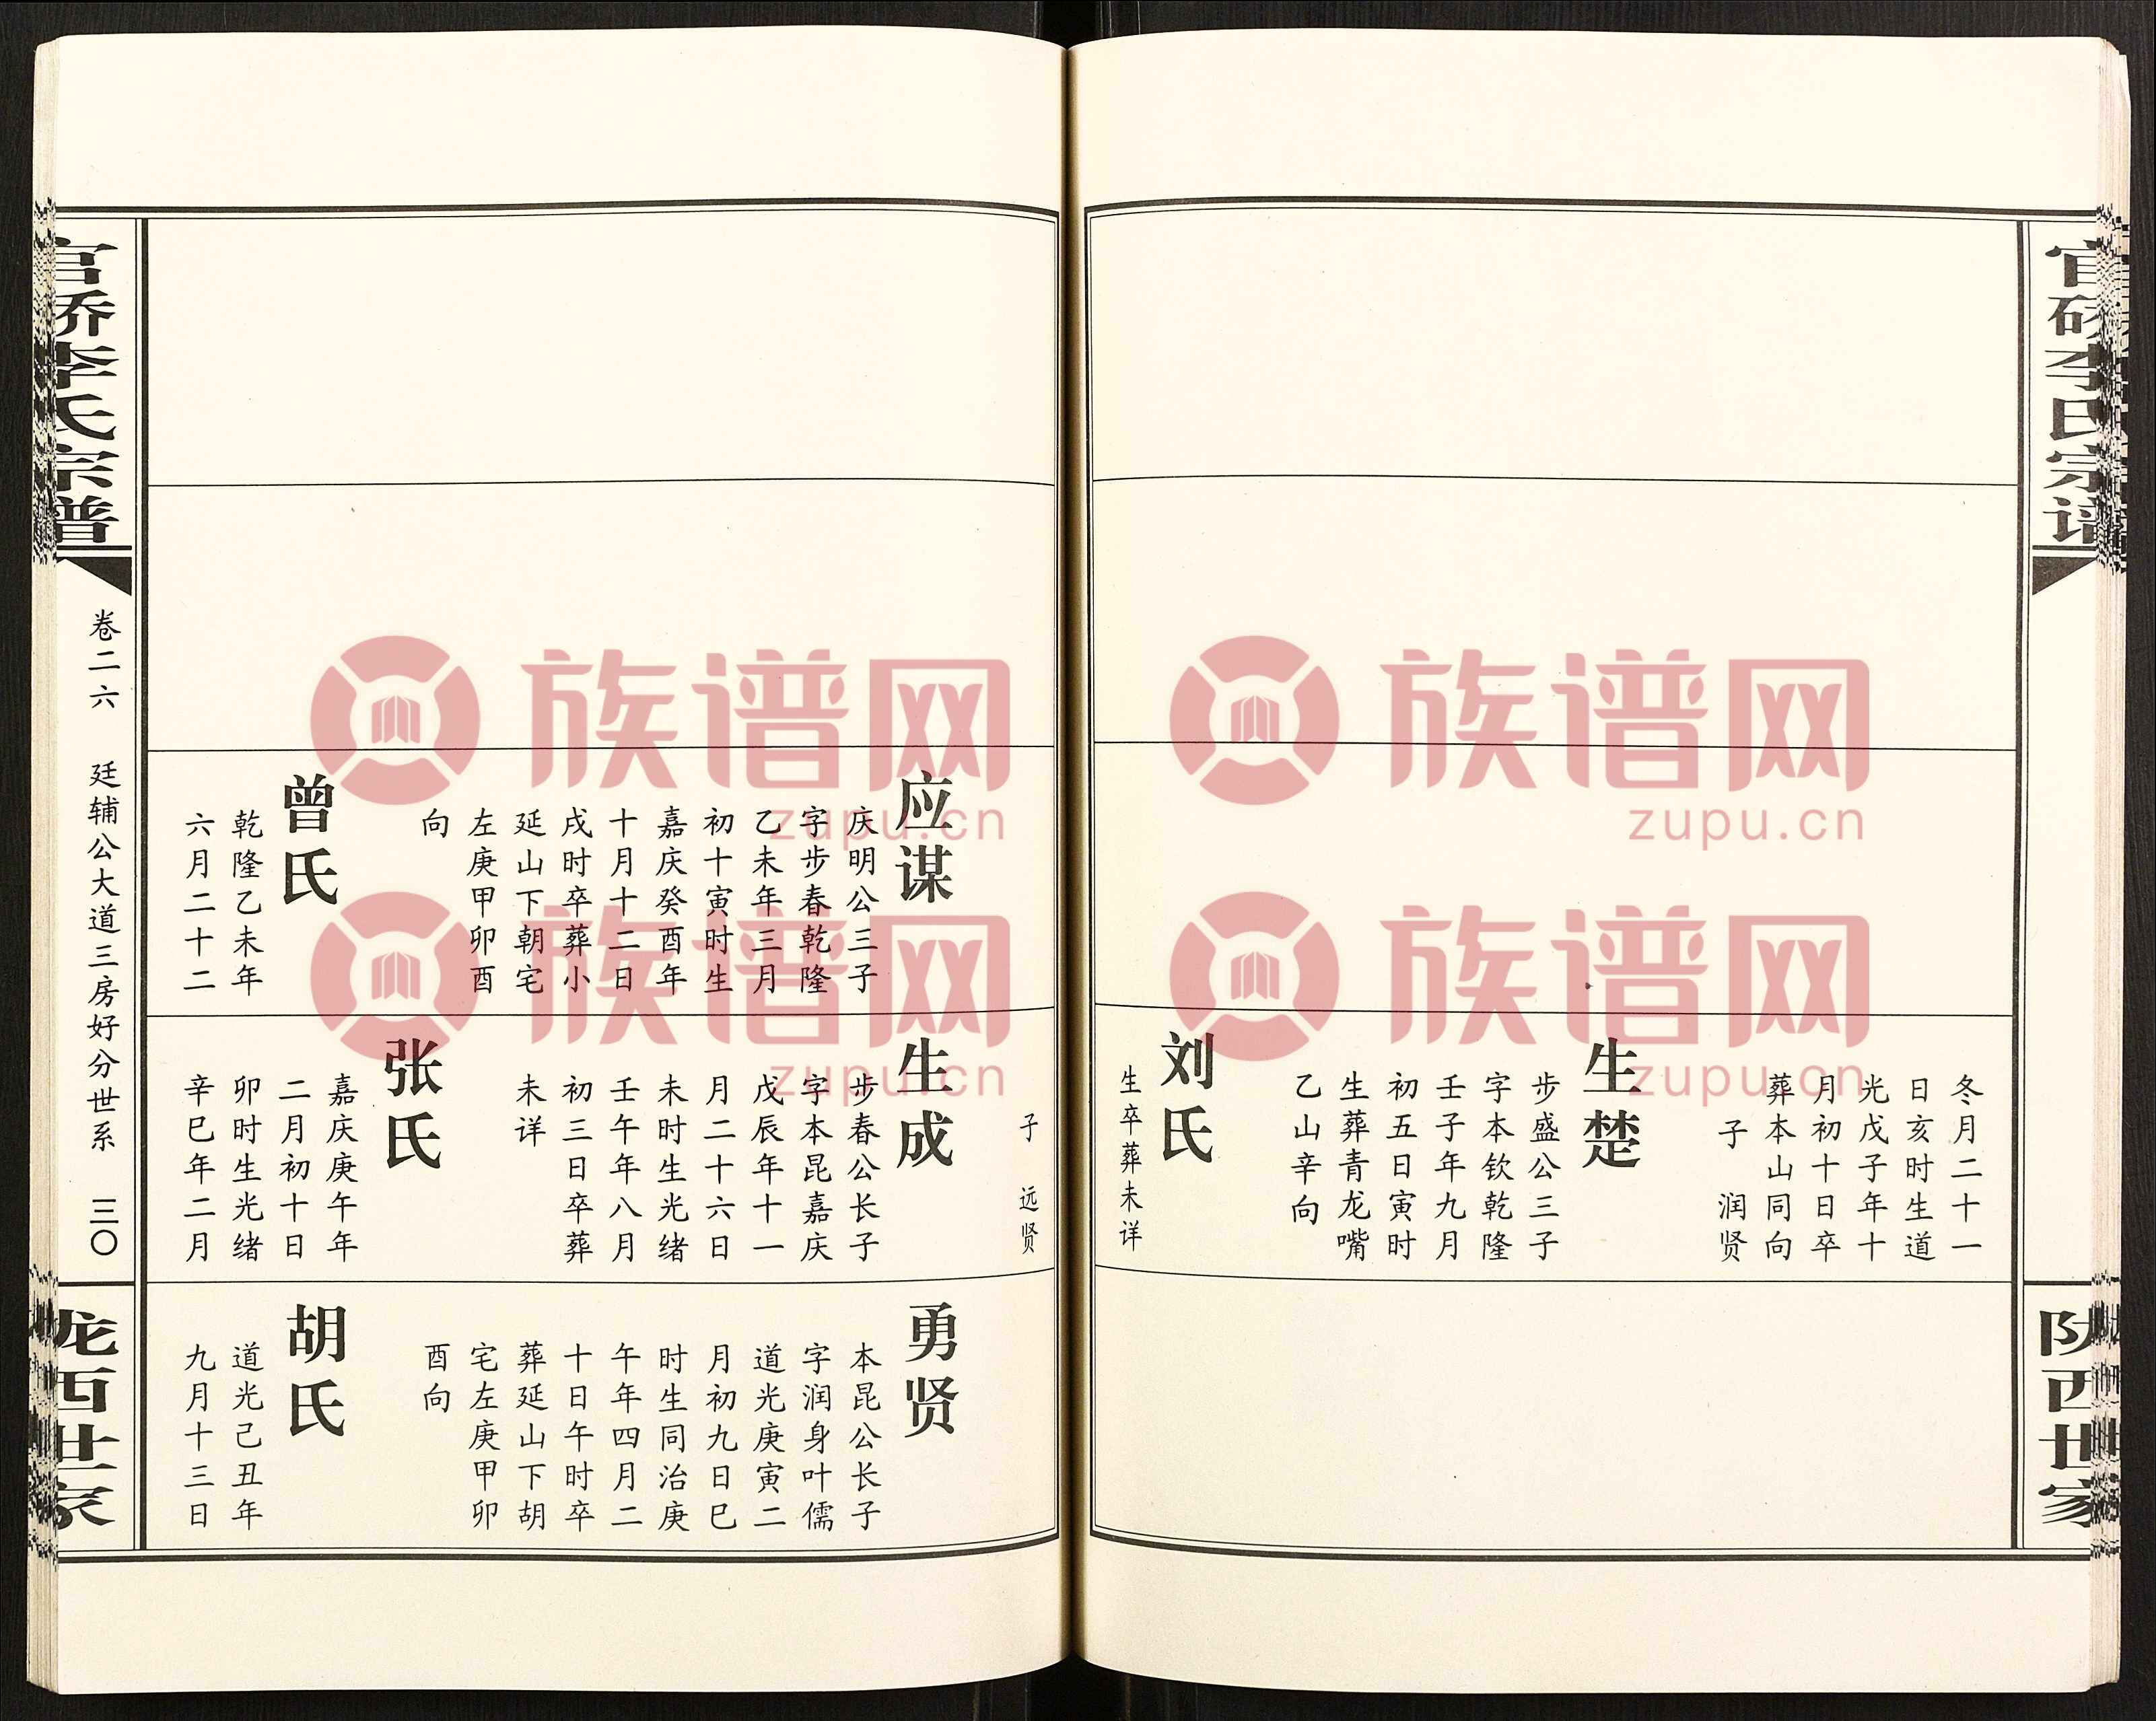 官桥李氏宗谱
陇西世家
冬月二十一
日亥时生道
光戊子年十
月初十日卒
葬本山同向
子 润贤
生楚
步盛公三子
字本钦乾隆
壬子年九月
初五日寅时
生葬青龙嘴
乙山辛向
刘氏
生卒葬未详
子 远贤
应谋
庆明公三子
字步春乾隆
乙未年三月
初十寅时生
嘉庆癸酉年
十月十二日
戌时卒葬小
延山下朝宅
左庚甲卯酉
向
曾氏
乾隆乙未年
六月二十二
生成
步春公长子
字本昆嘉庆
戊辰年十一
月二十六日
未时生光绪
壬午年八月
初三日卒葬
未详
张氏
嘉庆庚午年
二月初十日
卯时生光绪
辛巳年二月
勇贤
本昆公长子
字润身叶儒
道光庚寅二
月初九日巳
时生同治庚
午年四月二
十日午时卒
葬延山下胡
宅左庚甲卯
酉向
胡氏
道光己丑年
九月十三日
官桥李氏宗谱
卷二六 廷辅公大道三房好分世系 三〇
陇西世家
族谱网
zupu.cn
族谱网
zupu.cn
族谱网
zupu.cn
族谱网
zupu.cn